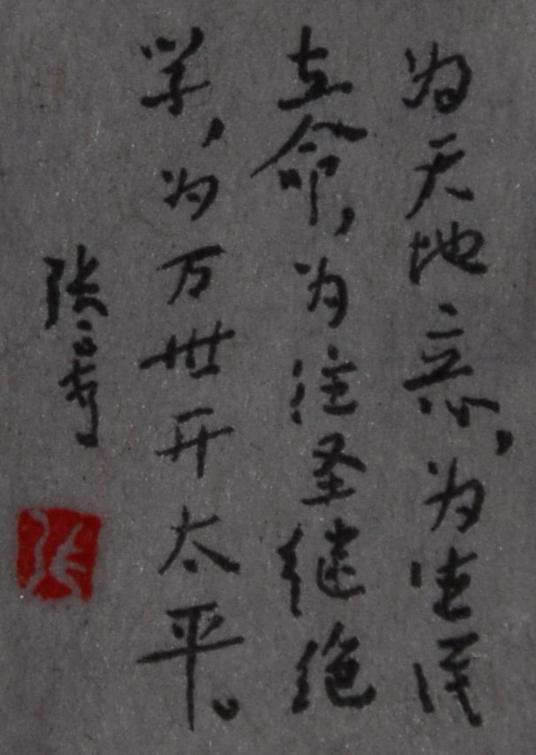 为天地立心，为生民
立命，为往圣继绝
学，为万世开太平。
张
张